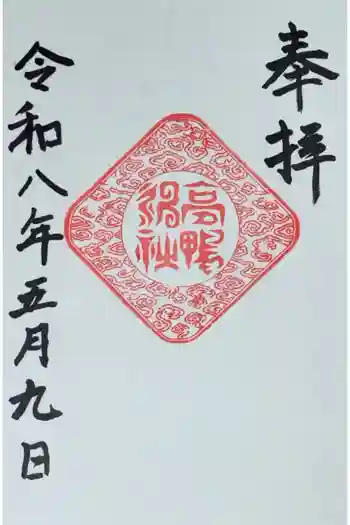 奉拝
高鴨
神社
令和八年五月九日